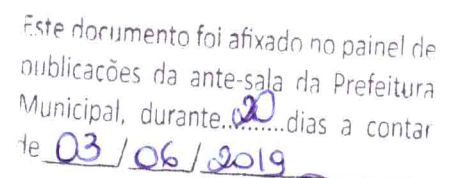 Este documento foi afixado no painel de
publicações da ante-sala da Prefeitura
Municipal, durante..20......dias a contar
de 03 / 06 / 2019